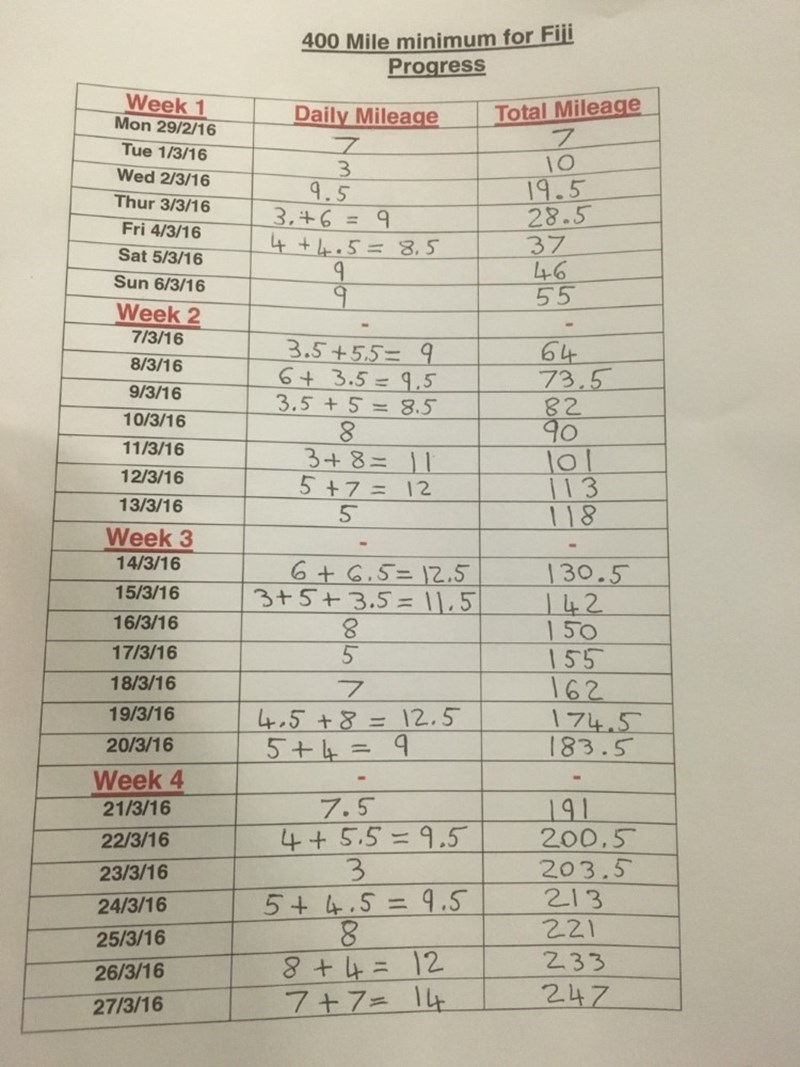 400 Mile minimum for Fiji
Progress
Week 1 Daily Mileage Total Mileage
Mon 29/2/16 7 7
Tue 1/3/16 3 10
Wed 2/3/16 9.5 19.5
Thur 3/3/16 3.+6 = 9 28.5
Fri 4/3/16 4 + 4.5 = 8.5 37
Sat 5/3/16 9 46
Sun 6/3/16 9 55
Week 2 - -
7/3/16 3.5 + 5.5 = 9 64
8/3/16 6 + 3.5 = 9.5 73.5
9/3/16 3.5 + 5 = 8.5 82
10/3/16 8 90
11/3/16 3 + 8 = 11 101
12/3/16 5 + 7 = 12 113
13/3/16 5 118
Week 3 - -
14/3/16 6 + 6.5 = 12.5 130.5
15/3/16 3 + 5 + 3.5 = 11.5 142
16/3/16 8 150
17/3/16 5 155
18/3/16 7 162
19/3/16 4.5 + 8 = 12.5 174.5
20/3/16 5 + 4 = 9 183.5
Week 4 - -
21/3/16 7.5 191
22/3/16 4 + 5.5 = 9.5 200.5
23/3/16 3 203.5
24/3/16 5 + 4.5 = 9.5 213
25/3/16 8 221
26/3/16 8 + 4 = 12 233
27/3/16 7 + 7 = 14 247